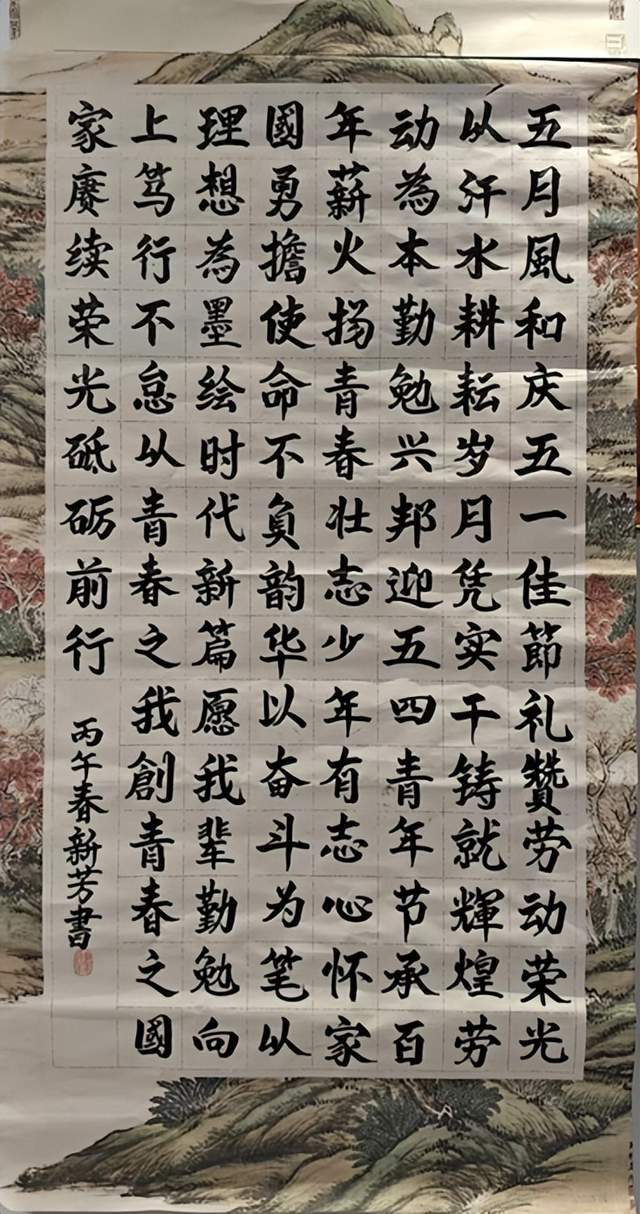 五月風和庆五一佳節礼贊劳动荣光
以汗水耕耘岁月凭实干铸就輝煌劳
动為本勤勉兴邦迎五四青年节承百
年薪火扬青春壮志少年有志心怀家
國勇擔使命不負韵华以奋斗为笔以
理想為墨绘时代新篇愿我辈勤勉向
上笃行不怠从青春之我創青春之國
家赓续荣光砥砺前行
丙午春新芳書